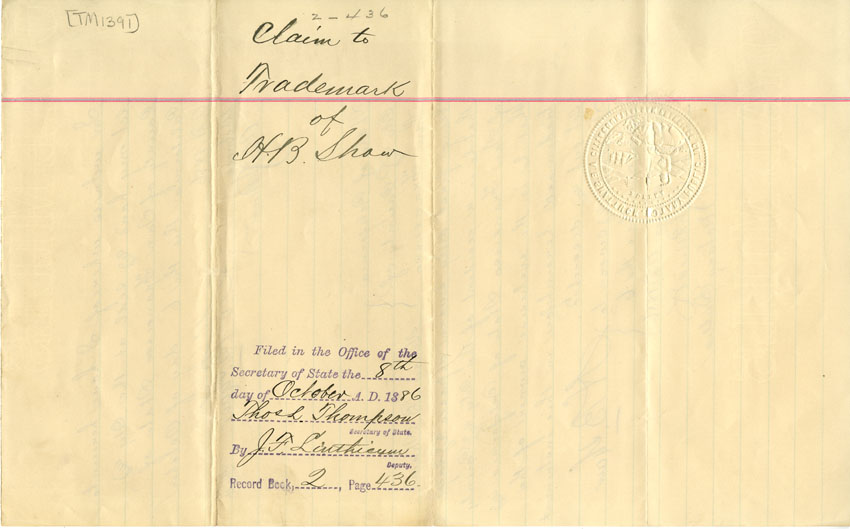 [TM1391]
2-436
Claim to
Trademark
of
H.B. Shaw
Filed in the Office of the
Secretary of State the 8th
day of October A. D. 1886
Thos L. Thompson
Secretary of State.
By J F Linthicum
Deputy.
Record Book, 2, Page 436.